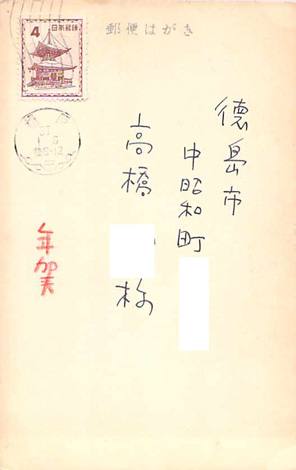 郵便はがき
4 日本郵便
徳島市
中昭和町
高橋
様
年賀